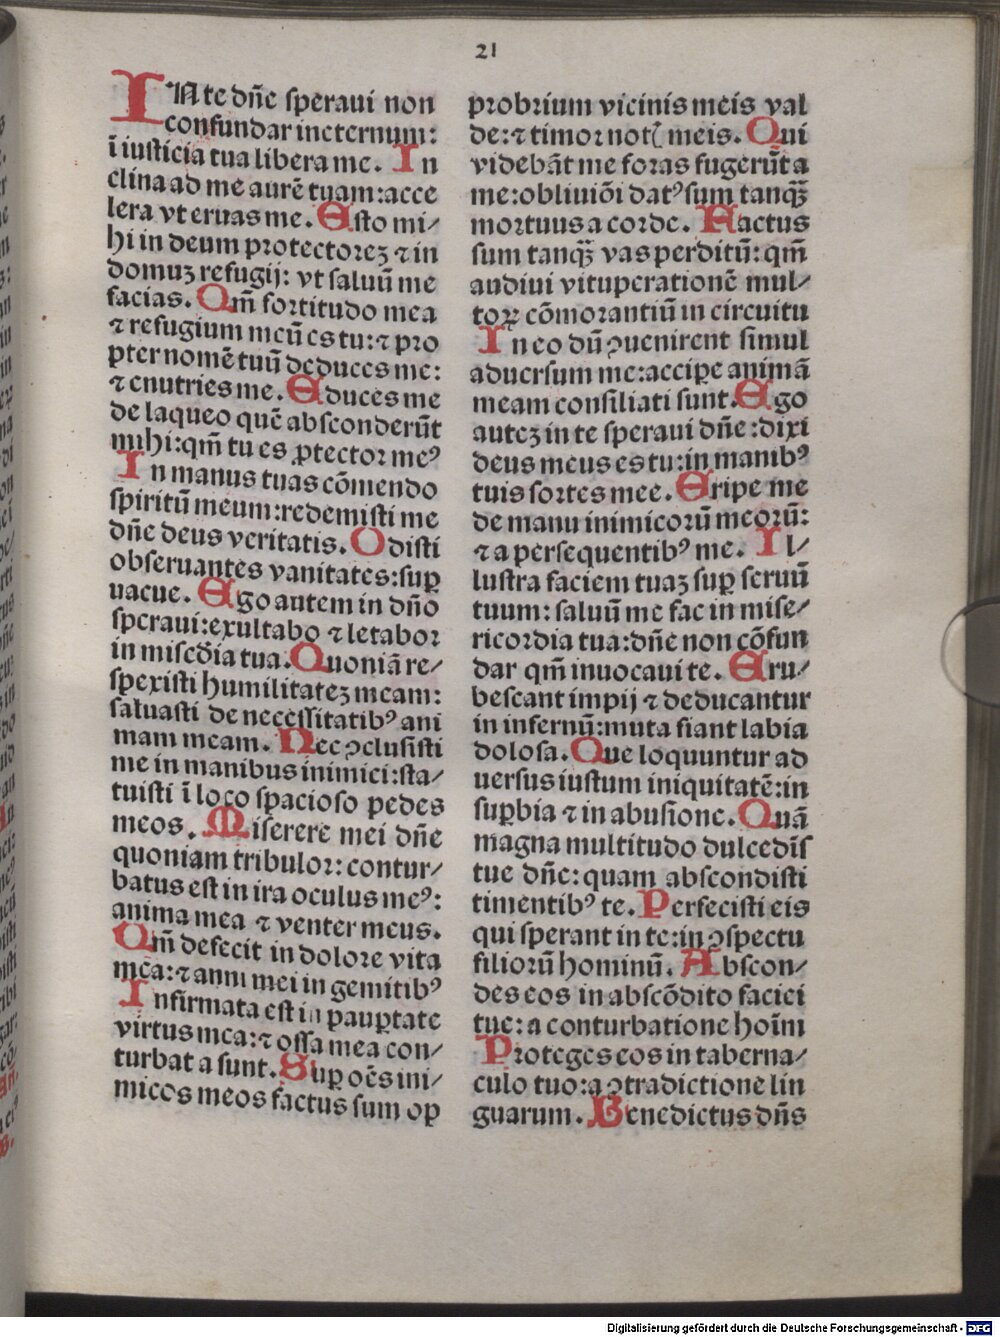 21
IN te dn̄e speraui non
confundar in eternum:
ī iusticia tua libera me. In
clina ad me aurē tuam: acce
lera vt eruas me. Esto mi⸗
hi in deum protectorez ⁊ in
domuz refugij: vt saluū me
facias. Qm̄ fortitudo mea
⁊ refugium meū es tu: ⁊ pro
pter nomē tuū deduces me:
⁊ enutries me. Educes me
de laqueo quē absconderūt
mihi: qm̄ tu es ꝓtector meꝰ
In manus tuas cōmendo
spiritū meum: redemisti me
dn̄e deus veritatis. Odisti
obseruantes vanitates: suꝑ
uacue. Ego autem in dn̄o
speraui: exultabo ⁊ letabor
in misc̄dia tua. Quoniā re⸗
spexisti humilitatez meam:
saluasti de necessitatibꝰ ani
mam meam. Nec ꝯclusisti
me in manibus inimici: sta⸗
tuisti ī loco spacioso pedes
meos. Miserere mei dn̄e
quoniam tribulor: contur⸗
batus est in ira oculus meꝰ:
anima mea ⁊ venter meus.
Qm̄ defecit in dolore vita
mea: ⁊ anni mei in gemitibꝰ
Infirmata est in pauꝑtate
virtus mea: ⁊ ossa mea con⸗
turbata sunt. Suꝑ oēs ini⸗
micos meos factus sum oꝑ
probrium vicinis meis val
de: ⁊ timor notꝭ meis. Qui
videbāt me foras fugerūt a
me: obliuiōi datꝰ sum tanqꝫ̄
mortuus a corde. Factus
sum tanqꝫ̄ vas perditū: qm̄
audiui vituperationē mul⸗
toꝝ cōmorantiū in circuitu
In eo dū ꝯuenirent simul
aduersum me: accipe animā
meam consiliati sunt. Ego
autez in te speraui dn̄e: dixi
deus meus es tu: in manibꝰ
tuis sortes mee. Eripe me
de manu inimicorū meorū:
⁊ a persequentibꝰ me. Il⸗
lustra faciem tuaz suꝑ seruū
tuum: saluū me fac in mise⸗
ricordia tua: dn̄e non cōfun
dar qm̄ inuocaui te. Eru⸗
bescant impij ⁊ deducantur
in infernū: muta fiant labia
dolosa. Que loquuntur ad
uersus iustum iniquitatē: in
suꝑbia ⁊ in abusione. Quā
magna multitudo dulcedīs
tue dn̄e: quam abscondisti
timentibꝰ te. Perfecisti eis
qui sperant in te: in ꝯspectu
filiorū hominū. Abscon⸗
des eos in abscōdito faciei
tue: a conturbatione hoīm
Proteges eos in taberna⸗
culo tuo: a ꝯtradictione lin
guarum. Benedictus dn̄s
Digitalisierung gefördert durch die Deutsche Forschungsgemeinschaft - DFG